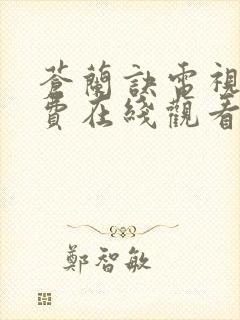 蒼蘭訣電視
費在綫觀看
鄭智敏